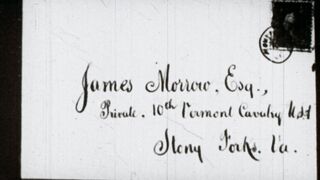 James Morrow, Esq.,
Private. 10th Vermont Cavalry U.S.A
Stony Forks. Va.